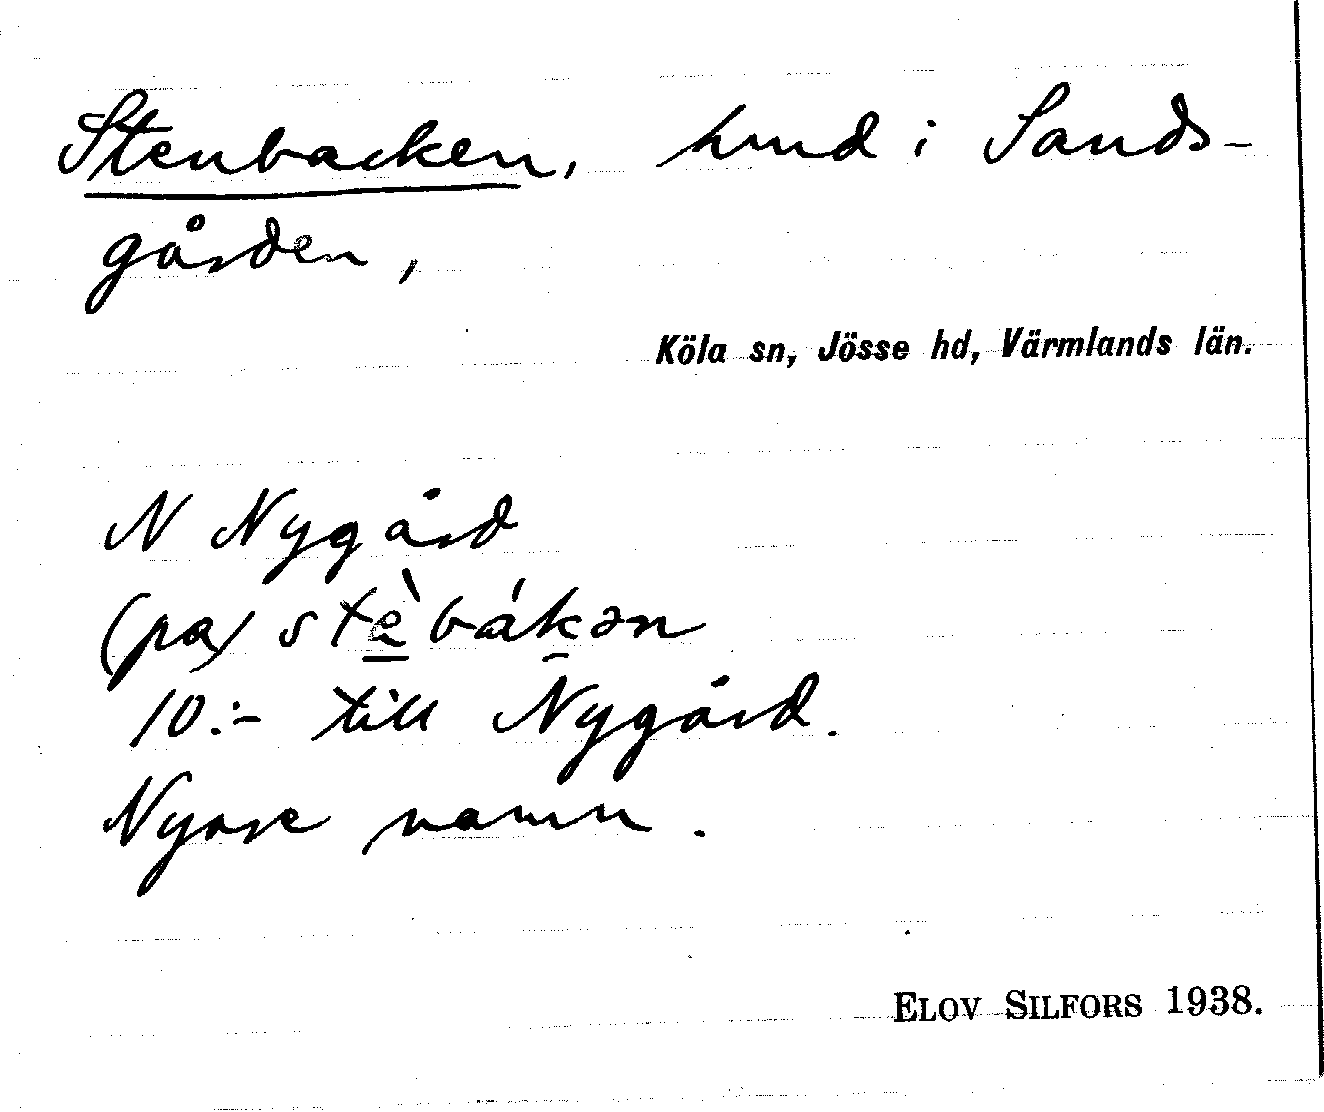 Stenbacken, hmd i Sands-
gården,
Köla sn, Jösse hd, Värmlands län.
N Nygård
(pa) stè̲bák̲ən
10:- till Nygård.
Nyare namn.
ELOV SILFORS 1938.